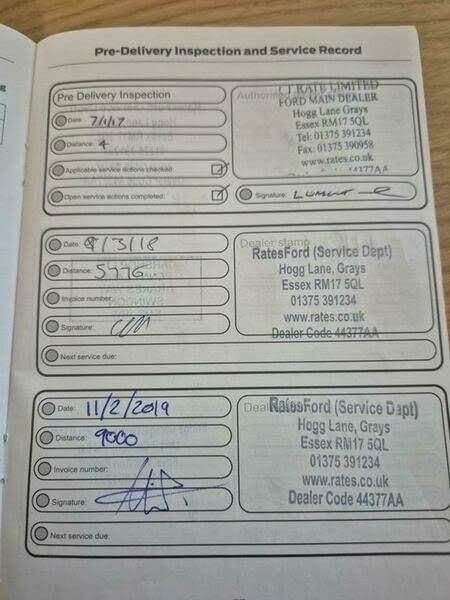 Pre-Delivery Inspection and Service Record
Pre Delivery Inspection
Date: 7/1/17
Distance: 4
Applicable service actions checked
Open service actions completed:
Authorised
RATE LIMITED
FORD MAIN DEALER
Hogg Lane Grays
Essex RM17 5QL
Tel: 01375 391234
Fax: 01375 390958
www.rates.co.uk
44377AA
Signature:
Date: 8/3/18
Distance: 5776
Invoice number:
Signature:
Next service due:
Dealer stamp
RatesFord (Service Dept)
Hogg Lane, Grays
Essex RM17 5QL
01375 391234
www.rates.co.uk
Dealer Code 44377AA
Date: 11/2/2019
Distance: 9000
Invoice number:
Signature:
Next service due:
RatesFord (Service Dept)
Hogg Lane, Grays
Essex RM17 5QL
01375 391234
www.rates.co.uk
Dealer Code 44377AA